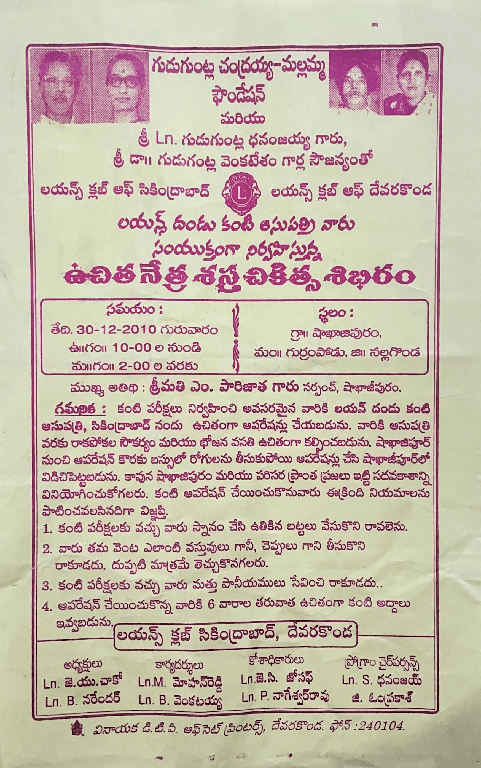 గుడుగుంట్ల చంద్రయ్య-మల్లమ్మ
ఫౌండేషన్
మరియు
శ్రీ Ln. గుడుగుంట్ల ధనంజయ్య గారు,
శ్రీ డా॥ గుడుగుంట్ల వెంకటేశం గార్ల సౌజన్యంతో
లయన్స్ క్లబ్ ఆఫ్ సికింద్రాబాద్ L లయన్స్ క్లబ్ ఆఫ్ దేవరకొండ
లయన్స్ దండు కంటి ఆసుపత్రి వారు
సంయుక్తంగా నిర్వహిస్తున్న
ఉచిత నేత్ర శస్త్ర చికిత్స శిబిరం
సమయం :
తేది. 30-12-2010 గురువారం
ఉ॥గం॥ 10-00 ల నుండి
మ॥గం॥ 2-00 ల వరకు
స్థలం :
గ్రా॥ షాఖాజిపురం,
మం॥ గుర్రంపోడు, జి॥ నల్లగొండ
ముఖ్య అతిథి : శ్రీమతి ఎం. పారిజాత గారు సర్పంచ్, షాఖాజీపురం.
గమనిక : కంటి పరీక్షలు నిర్వహించి అవసరమైన వారికి లయన్ దండు కంటి
ఆసుపత్రి, సికింద్రాబాద్ నందు ఉచితంగా ఆపరేషన్లు చేయబడును. వారికి ఆసుపత్రి
వరకు రాకపోకల సౌకర్యం మరియు భోజన వసతి ఉచితంగా కల్పించబడును. షాఖాజిపూర్
నుంచి ఆపరేషన్ కొరకు బస్సులో రోగులను తీసుకుపోయి ఆపరేషన్లు చేసి షాఖాజీపూర్‌లో
విడిచిపెట్టబడును. కావున షాఖాజిపురం మరియు పరిసర ప్రాంత ప్రజలు ఇట్టి సదవకాశాన్ని
వినియోగించుకోగలరు. కంటి ఆపరేషన్ చేయించుకొనువారు ఈక్రింది నియమాలను
పాటించవలసినదిగా విజ్ఞప్తి.
1. కంటి పరీక్షలకు వచ్చు వారు స్నానం చేసి ఉతికిన బట్టలు వేసుకొని రావలెను.
2. వారు తమ వెంట ఎలాంటి వస్తువులు గానీ, చెప్పులు గాని తీసుకొని
రాకూడదు. దుప్పటి మాత్రమే తెచ్చుకొనగలరు.
3. కంటి పరీక్షలకు వచ్చు వారు మత్తు పానీయములు సేవించి రాకూడదు..
4. ఆపరేషన్ చేయించుకొన్న వారికి 6 వారాల తరువాత ఉచితంగా కంటి అద్దాలు
ఇవ్వబడును.
లయన్స్ క్లబ్ సికింద్రాబాద్, దేవరకొండ
అధ్యక్షులు
Ln. జె.యు.చాకో
Ln. B. నరేందర్
కార్యదర్శులు
Ln.M. మోహన్‌రెడ్డి
Ln. B. వెంకటయ్య
కోశాధికారులు
Ln.జె.సి. జోసఫ్
Ln. P. నాగేశ్వర్‌రావు
ప్రోగ్రాం చైర్‌పర్సన్స్
Ln. S. ధనంజయ్
జి. ఓంప్రకాశ్
వినాయక డి.టి.పి. ఆఫ్‌సెట్ ప్రింటర్స్, దేవరకొండ. ఫోన్ : 240104.